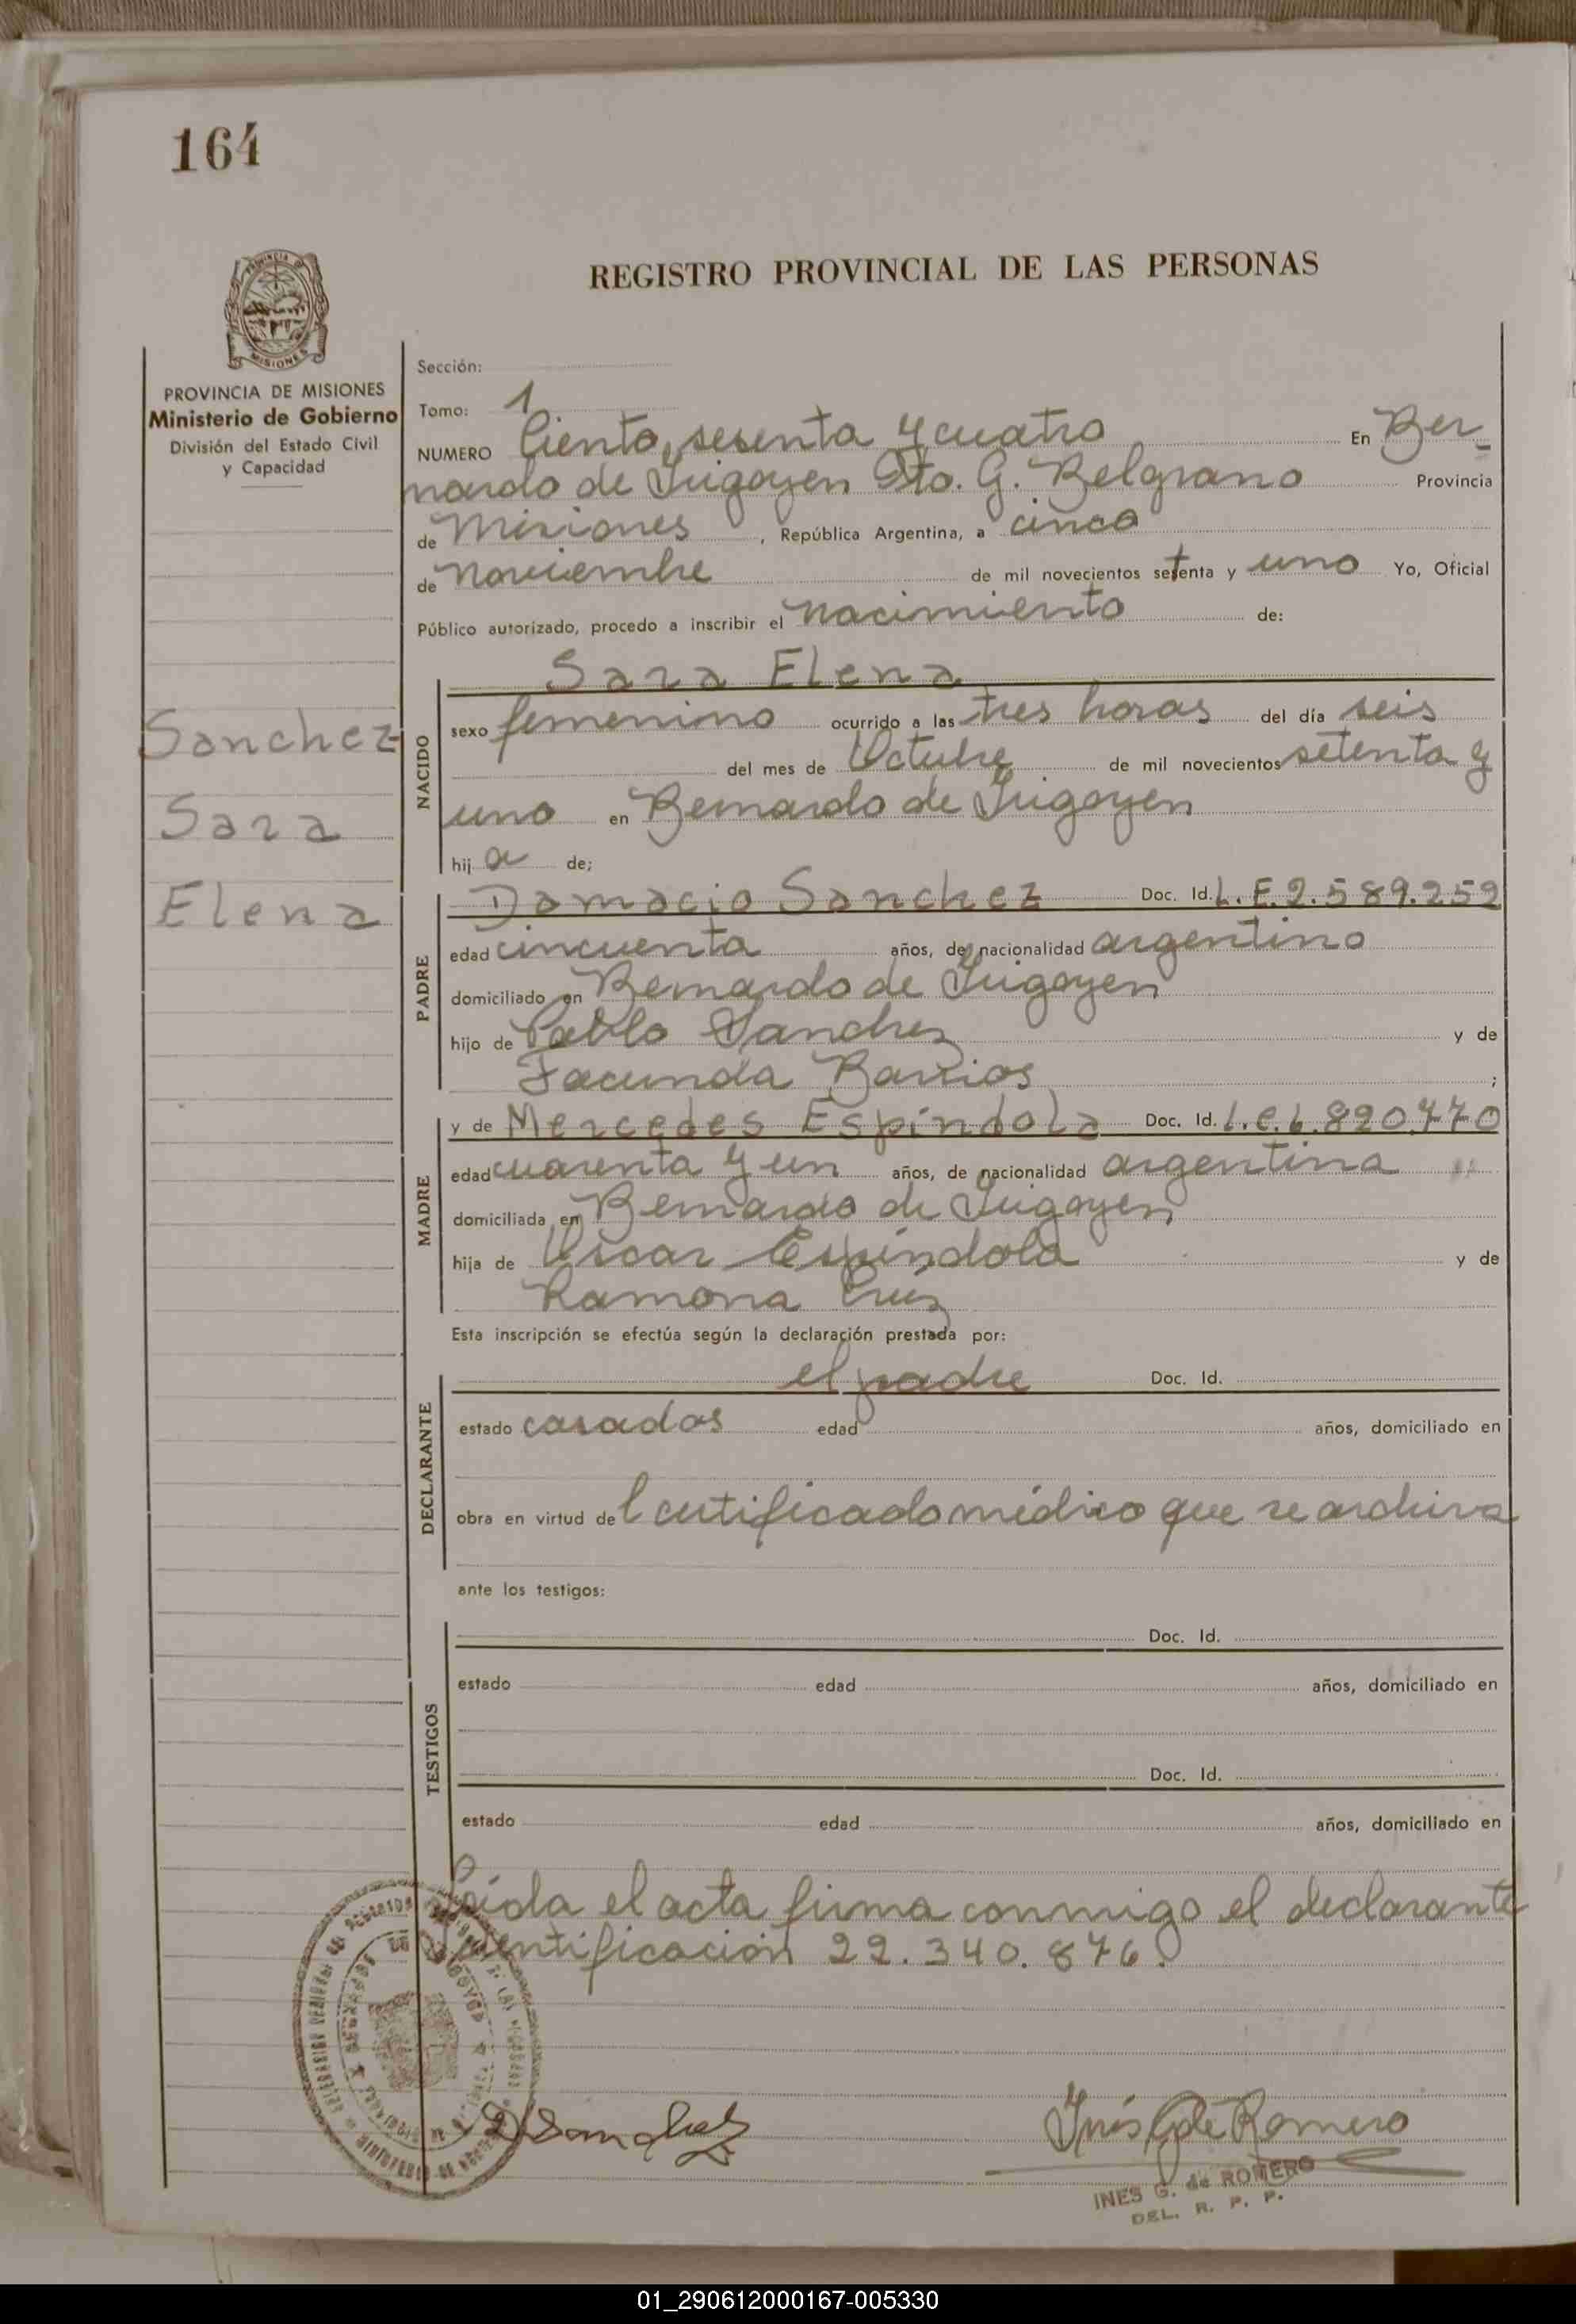 164
REGISTRO PROVINCIAL DE LAS PERSONAS
PROVINCIA DE MISIONES
Ministerio de Gobierno
División del Estado Civil
y Capacidad
Sanchez
Sara
Elena
Sección:
Tomo: 1
NUMERO Ciento sesenta y cuatro En Ber-
nardo de Irigoyen Dto. G. Belgrano Provincia
de Misiones, República Argentina, a cinco
de noviembre de mil novecientos setenta y uno Yo, Oficial
Público autorizado, procedo a inscribir el nacimiento de:
NACIDO
Sara Elena
sexo femenino ocurrido a las tres horas del día seis
del mes de Octubre de mil novecientos setenta y
uno en Bernardo de Irigoyen
hij a de;
PADRE
Damacio Sanchez Doc. Id. L.E. 2.589.259
edad cincuenta años, de nacionalidad argentino
domiciliado en Bernardo de Irigoyen
hijo de Pablo Sanchez y de
Facunda Barrios ;
MADRE
y de Mercedes Espíndola Doc. Id. L.C. 6.820.770
edad cuarenta y un años, de nacionalidad argentina
domiciliada en Bernardo de Irigoyen
hija de Oscar Espíndola y de
Ramona Cruz
Esta inscripción se efectúa según la declaración prestada por:
DECLARANTE
el padre Doc. Id.
estado casados edad años, domiciliado en
obra en virtud del certificado médico que se archiva
ante los testigos:
TESTIGOS
Doc. Id.
estado edad años, domiciliado en
Doc. Id.
estado edad años, domiciliado en
Leída el acta firma conmigo el declarante
Identificación 22.340.876.
D Sanchez
Inés G de Romero
INES G. de ROMERO
DEL. R. P. P.
01_290612000167-005330